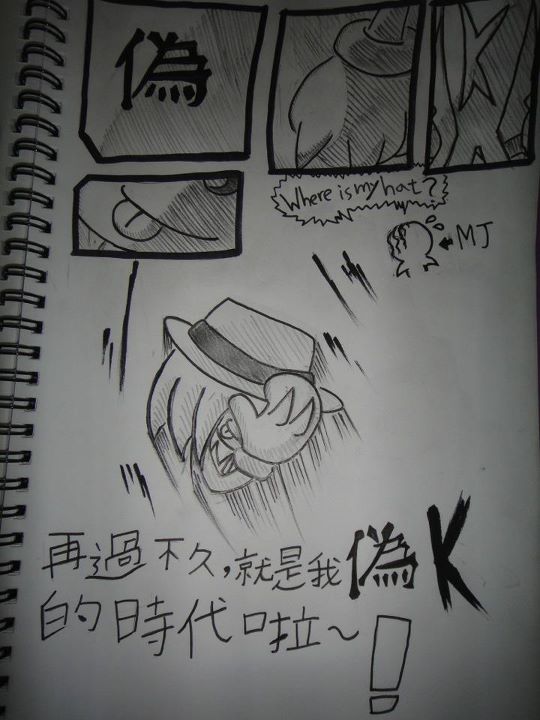 偽
Where is my hat?
MJ
再過不久,就是我偽K
的時代啦~!